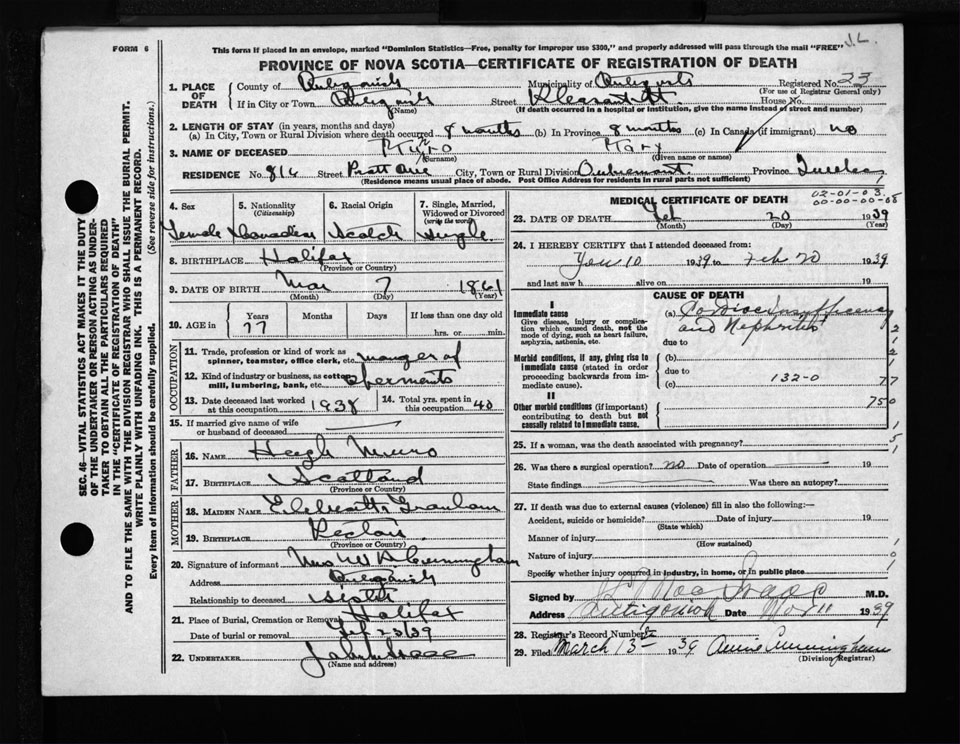 FORM 6
This form if placed in an envelope, marked "Dominion Statistics—Free, penalty for improper use $300," and properly addressed will pass through the mail "FREE"
J.L.
PROVINCE OF NOVA SCOTIA—CERTIFICATE OF REGISTRATION OF DEATH
1. PLACE OF DEATH
County of Antigonish Municipality of Antigonish Registered No. 23
(For use of Registrar General only)
If in City or Town Antigonish Street Pleasant St. House No.
(Name) (If death occurred in a hospital or institution, give the name instead of street and number)
2. LENGTH OF STAY (in years, months and days)
(a) In City, Town or Rural Division where death occurred 8 months (b) In Province 8 months (c) In Canada (if immigrant) no
3. NAME OF DECEASED Munro Mary
(Surname) (Given name or names)
RESIDENCE No. 816 Street Pratt Ave City, Town or Rural Division Outremont Province Quebec
(Residence means usual place of abode. Post Office Address for residents in rural parts not sufficient)
4. Sex Female
5. Nationality (Citizenship) Canadian
6. Racial Origin Scotch
7. Single, Married, Widowed or Divorced (write the word) Single
8. BIRTHPLACE Halifax
(Province or Country)
9. DATE OF BIRTH Mar 7 1861
(Month) (Day) (Year)
10. AGE in Years 77 Months Days If less than one day old
hrs. or min.
OCCUPATION
11. Trade, profession or kind of work as spinner, teamster, office clerk, etc. manager of
12. Kind of industry or business, as cotton mill, lumbering, bank, etc.
13. Date deceased last worked at this occupation 1938
14. Total yrs. spent in this occupation 40
15. If married give name of wife or husband of deceased
FATHER
16. NAME Hugh Munro
17. BIRTHPLACE Scotland
(Province or Country)
MOTHER
18. MAIDEN NAME Elizabeth Graham
19. BIRTHPLACE Pictou
(Province or Country)
20. Signature of informant Mrs W A Cunningham
Address Antigonish
Relationship to deceased sister
21. Place of Burial, Cremation or Removal Halifax
Date of burial or removal Feb 23/39
22. UNDERTAKER
(Name and address)
MEDICAL CERTIFICATE OF DEATH
02-01-03
00-00-00-08
23. DATE OF DEATH Feb 20 1939
(Month) (Day) (Year)
24. I HEREBY CERTIFY that I attended deceased from:
Jan 10 1939 to Feb 20 1939
and last saw h alive on 19
CAUSE OF DEATH
I
Immediate cause
Give disease, injury or complication which caused death, not the mode of dying, such as heart failure, asphyxia, asthenia, etc.
(a) Cardiac Insufficiency
and Nephritis
due to
Morbid conditions, if any, giving rise to immediate cause (stated in order proceeding backwards from immediate cause).
(b)
due to
(c) 132-0
77
750
II
Other morbid conditions (if important) contributing to death but not causally related to immediate cause.
25. If a woman, was the death associated with pregnancy?
26. Was there a surgical operation? no Date of operation 19
State findings Was there an autopsy?
27. If death was due to external causes (violence) fill in also the following:—
Accident, suicide or homicide? Date of injury 19
(State which)
Manner of injury
(How sustained)
Nature of injury
Specify whether injury occurred in industry, in home, or in public place
Signed by M.D.
Address Antigonish Date Mar 11 1939
28. Registrar's Record Number
29. Filed March 13 1939 Annie Cunningham
(Division Registrar)
SEC. 46—VITAL STATISTICS ACT MAKES IT THE DUTY OF THE UNDERTAKER OR PERSON ACTING AS UNDERTAKER TO OBTAIN ALL THE PARTICULARS REQUIRED IN THE "CERTIFICATE OF REGISTRATION OF DEATH" AND TO FILE THE SAME WITH THE DIVISION REGISTRAR WHO SHALL ISSUE THE BURIAL PERMIT.
WRITE PLAINLY WITH UNFADING INK. THIS IS A PERMANENT RECORD.
Every item of information should be carefully supplied. (See reverse side for instructions.)